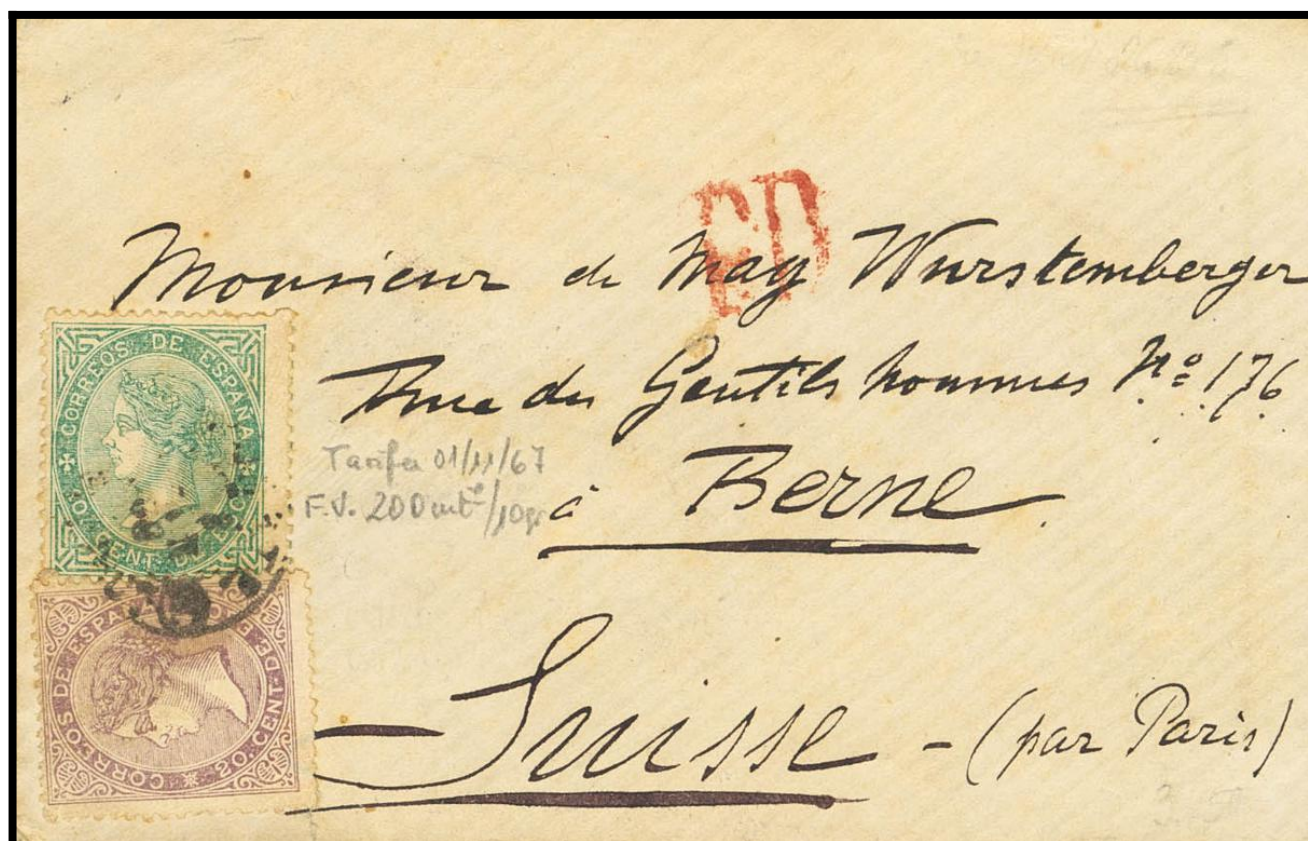 PD
Monsieur de May Wurstemberger
Rue des Gentils hommes Nº 176
à Berne
Suisse - (par Paris)
Tarifa 01/11/67
F.V. 200 mlª/10gr
CORREOS DE ESPAÑA
CENT. DE E
CORREOS DE ESPAÑA
CENT. DE E